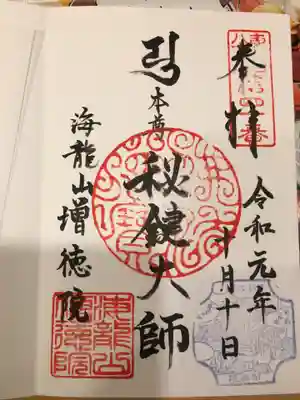 奉拝
令和元年
十月十日
本尊
秘鍵大師
海龍山増徳院